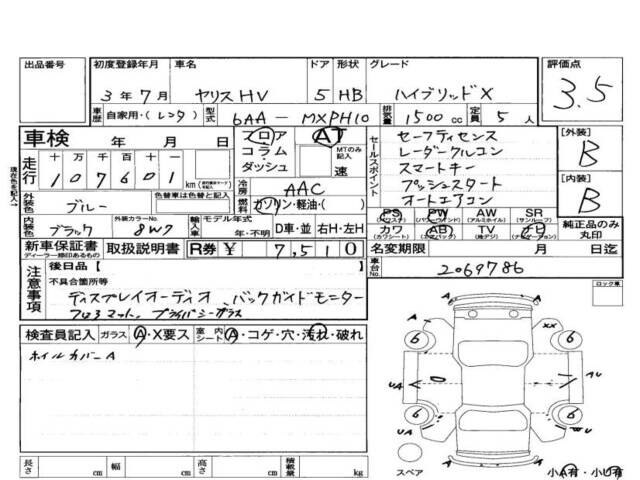 出品番号 初度登録年月 車名 ドア 形状 グレード 評価点
3年 7月 ヤリスHV 5 HB ハイブリッドX 3.5
車歴 自家用・(レンタ) 型式 6AA-MXPH10 排気量 1500cc 定員 5人
車検 年 月 日
フロア AT
コラム・
ダッシュ
MTのみ記入
速
セールスポイント
セーフティセンス
レーダークルコン
スマートキー
プッシュスタート
オートエアコン
[外装]
B
[内装]
B
現在の色を記入→
走行 十万 万 千 百 十 一
107601 km
冷房 AAC
燃料 ガソリン・軽油・( )
外装色 ブルー 色替車は色替と記入
内装色 ブラック 外装カラーNo. 8W7 輸入車 モデル年式 年・不明 D車・並 右H・左H
PS PW AW SR
(パワステ) (パワーウインド) (アルミホイル) (サンルーフ)
カワ AB TV ナビ
(カワシート) (エアバック) (純正デジ) (ナビゲーション)
純正品のみ丸印
新車保証書 取扱説明書 R券 ¥ 7,510
ディーラー捺印あるもの
名変期限 月 日迄
車台No. 2069786
注意事項
後日品[ ]
不具合箇所等
ディスプレイオーディオ、バックガイドモニター
フロアマット、プライバシーガラス
ロック車
検査員記入 ガラス A・X要ス 室内シート A・コゲ・穴・汚れ・破れ
ホイルカバーA
A A
XX
6 6
UA A AU
6 6
UA U
A A
スペア
小A有・小U有
長さ cm 幅 cm 高さ cm 積載量 kg